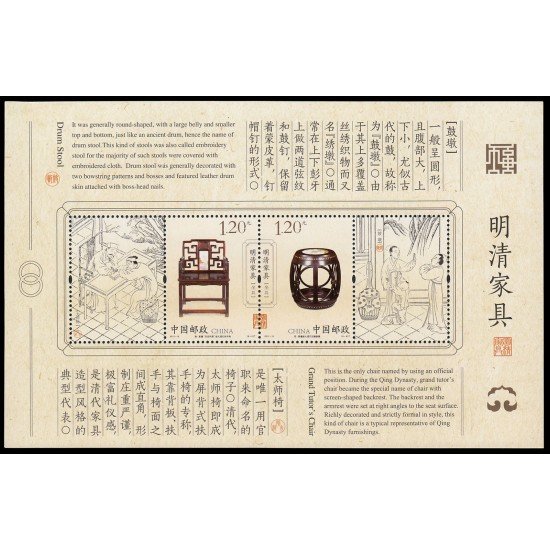 Drum Stool
It was generally round-shaped, with a large belly and smaller
top and bottom, just like an ancient drum, hence the name of
drum stool.This kind of stools was also called embroidery
stool for the majority of such stools were covered with
embroidered cloth. Drum stool was generally decorated with
two bowstring patterns and bosses and featured leather drum
skin attached with boss-head nails.
【鼓墩】
一般呈圆形，
且腹部大，上
下小，尤似古
代的鼓，故称
为『鼓墩』○由
于其上多覆盖
丝绣织物而又
名『绣墩』○通
常在上下彭牙
上做两道弦纹
和鼓钉，保留
着蒙皮革，钉
帽钉的形式○
明清家具
1.20元
明清家具
中国邮政
CHINA
1.20元
CHINA
中国邮政
【太师椅】
是唯一用官
职来命名的
椅子○清代，
太师椅即成
为屏背式扶
手椅的专称，
其靠背板扶
手与椅面之
间成直角，形
制庄重严谨，
极富礼仪感，
是清代家具
造型风格的
典型代表○
Grand Tutor's Chair
This is the only chair named by using an official
position. During the Qing Dynasty, grand tutor's
chair became the special name of chair with
screen-shaped backrest. The backrest and the
armrest were set at right angles to the seat surface.
Richly decorated and strictly formal in style, this
kind of chair is a typical representative of Qing
Dynasty furnishings.